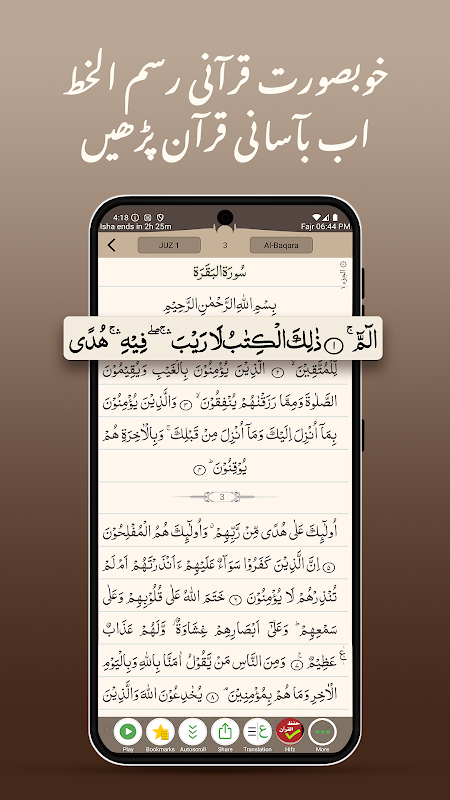 خوبصورت قرآنی رسم الخط
اب بآسانی قرآن پڑھیں
4:18
Isha ends in 2h 25m
Fajr 06:44 PM
JUZ 1
3
Al-Baqara
سُوْرَةُ الْبَقَرَة
بِسْمِ اللّٰهِ الرَّحْمٰنِ الرَّحِيْمِ
الٓمّٓ ۚ ۝۱ ذٰلِكَ الْكِتٰبُ لَا رَيْبَ ۛۖۚ فِيْهِ ۛۚ هُدًى
لِّلْمُتَّقِيْنَ ۙ ۝۲ الَّذِيْنَ يُؤْمِنُوْنَ بِالْغَيْبِ وَيُقِيْمُوْنَ
الصَّلٰوةَ وَمِمَّا رَزَقْنٰهُمْ يُنْفِقُوْنَ ۙ ۝۳ وَالَّذِيْنَ يُؤْمِنُوْنَ
بِمَآ اُنْزِلَ اِلَيْكَ وَمَآ اُنْزِلَ مِنْ قَبْلِكَ ۚ وَبِالْاٰخِرَةِ هُمْ
يُوْقِنُوْنَ ؕ ۝۴
3
اُولٰٓئِكَ عَلٰى هُدًى مِّنْ رَّبِّهِمْ ۙ وَاُولٰٓئِكَ هُمُ الْمُفْلِحُوْنَ
۝۵ اِنَّ الَّذِيْنَ كَفَرُوْا سَوَآءٌ عَلَيْهِمْ ءَاَنْذَرْتَهُمْ اَمْ لَمْ
تُنْذِرْهُمْ لَا يُؤْمِنُوْنَ ۝۶ خَتَمَ اللّٰهُ عَلٰى قُلُوْبِهِمْ وَعَلٰى
سَمْعِهِمْ ؕ وَعَلٰٓى اَبْصَارِهِمْ غِشَاوَةٌ ؗ وَّلَهُمْ عَذَابٌ
عَظِيْمٌ ۝۷ وَمِنَ النَّاسِ مَنْ يَّقُوْلُ اٰمَنَّا بِاللّٰهِ وَبِالْيَوْمِ
الْاٰخِرِ وَمَا هُمْ بِمُؤْمِنِيْنَ ۘ ۝۸ يُخٰدِعُوْنَ اللّٰهَ وَالَّذِيْنَ
Play
Bookmarks
Autoscroll
Share
Translation
حفظ القرآن
Hifz
More